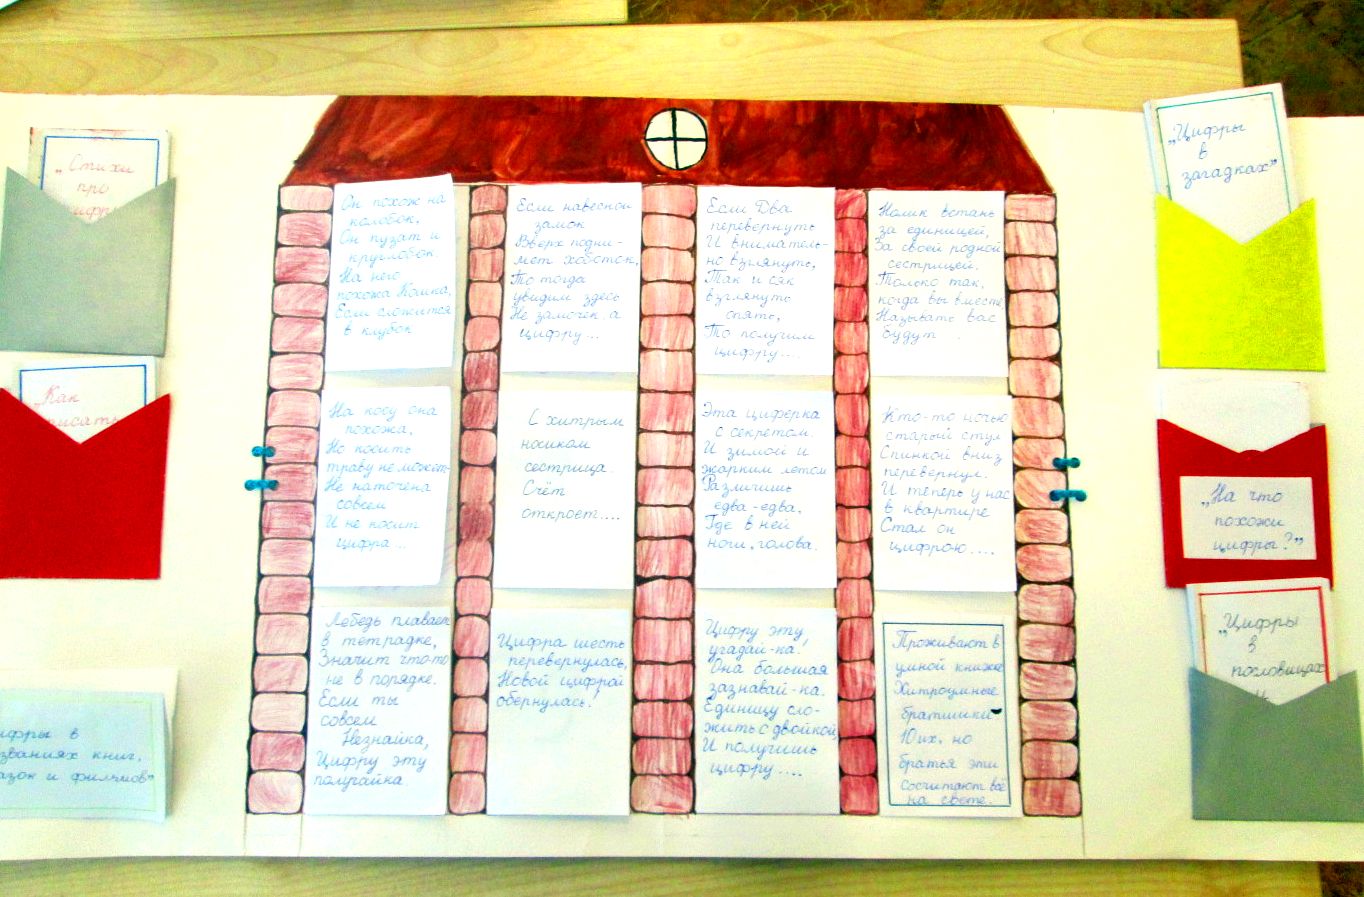 „Стихи
про
цифры
„Как
писать
цифры в
названиях книг,
сказок и фильмов"
Он похож на
колобок,
Он пузат и
круглобок.
На него
похожа Кошка,
Если сложится
в клубок
Если навесной
замок
Вверх подни-
мет хоботок,
То тогда
увидим здесь
Не замочек, а
цифру...
Если Два
перевернуть
И вниматель-
но взглянуть,
Так и сяк
взглянуть
опять,
То получим
цифру....
Нолик встань
за единицей,
За своей родной
сестрицей.
Только так,
когда вы вместе
Называть вас
будут
На косу она
похожа,
Но косить
траву не может-
Не наточена
совсем
И не косит
цифра...
С хитрым
носиком
сестрица.
Счёт
откроет....
Эта циферка
с секретом.
И зимой и
жарким летом
Различишь
едва-едва,
Где в ней
ноги, голова.
Кто-то ночью
старый стул
Спинкой вниз
перевернул.
И теперь у нас
в квартире
Стал он
цифрою....
Лебедь плавает
в тетрадке,
Значит что-то
не в порядке.
Если ты
совсем
Незнайка,
Цифру эту
получай-ка.
Цифра шесть
перевернулась,
Новой цифрой
обернулась!
Цифру эту
угадай-ка.
Она большая
зазнавай-ка.
Единицу сло-
жить с двойкой,
И получишь
цифру....
Проживают в
умной книжке
Хитроумные
братишки
10 их, но
братья эти
Сосчитают всё
на свете.
„Цифры
в
загадках"
„На что
похожи
цифры?"
„Цифры
в
пословицах
и